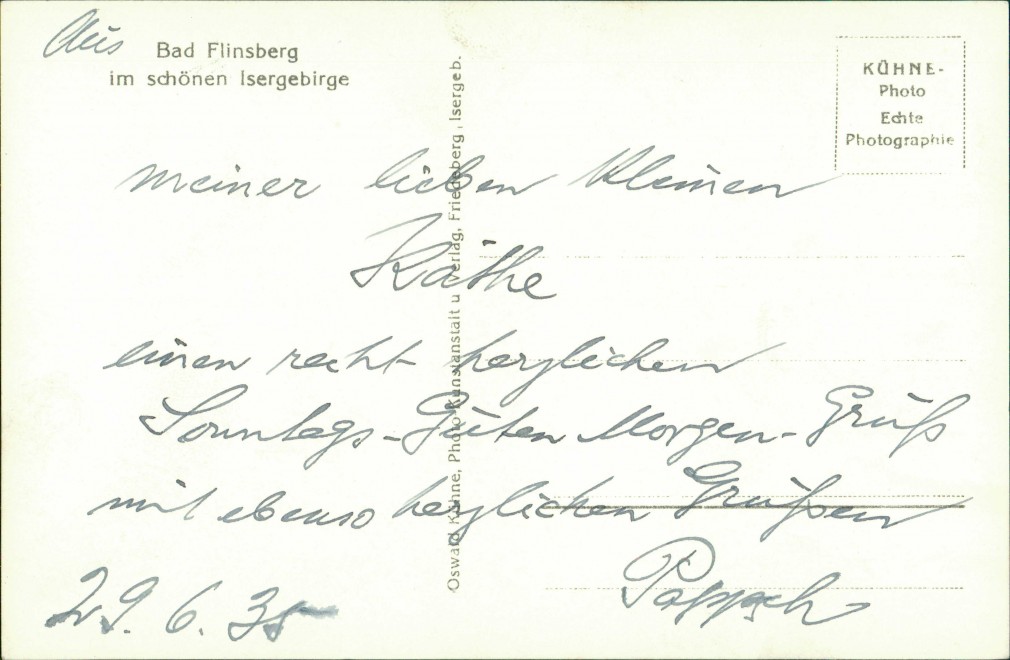 Aus Bad Flinsberg
im schönen Isergebirge
KÜHNE-
Photo
Echte
Photographie
meiner lieben kleinen
Käthe
einen recht herzlichen
Sonntags-Guten Morgen-Gruß
mit ebenso herzlichen Grüßen
29. 6. 35
Oswald Kühne, Photo Kunstanstalt u. Verlag, Friedeberg, Isergeb.